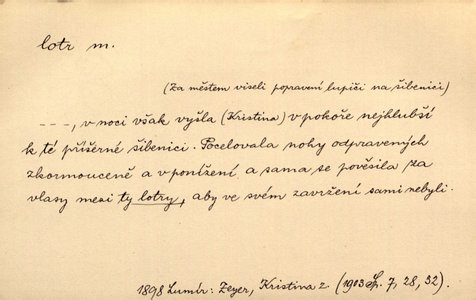 lotr m.
(Za městem viseli popravení lupiči na šibenici)
---, v noci však vyšla (Kristina) v pokoře nejhlubší
k té příšerné šibenici. Pocelovala nohy odpravených
zkormouceně a v ponížení a sama se pověsila za
vlasy mezi ty lotry, aby ve svém zavržení sami nebyli.
1898 Lumír: Zeyer, Kristina z. (1903 Sp. 7, 28, 32).